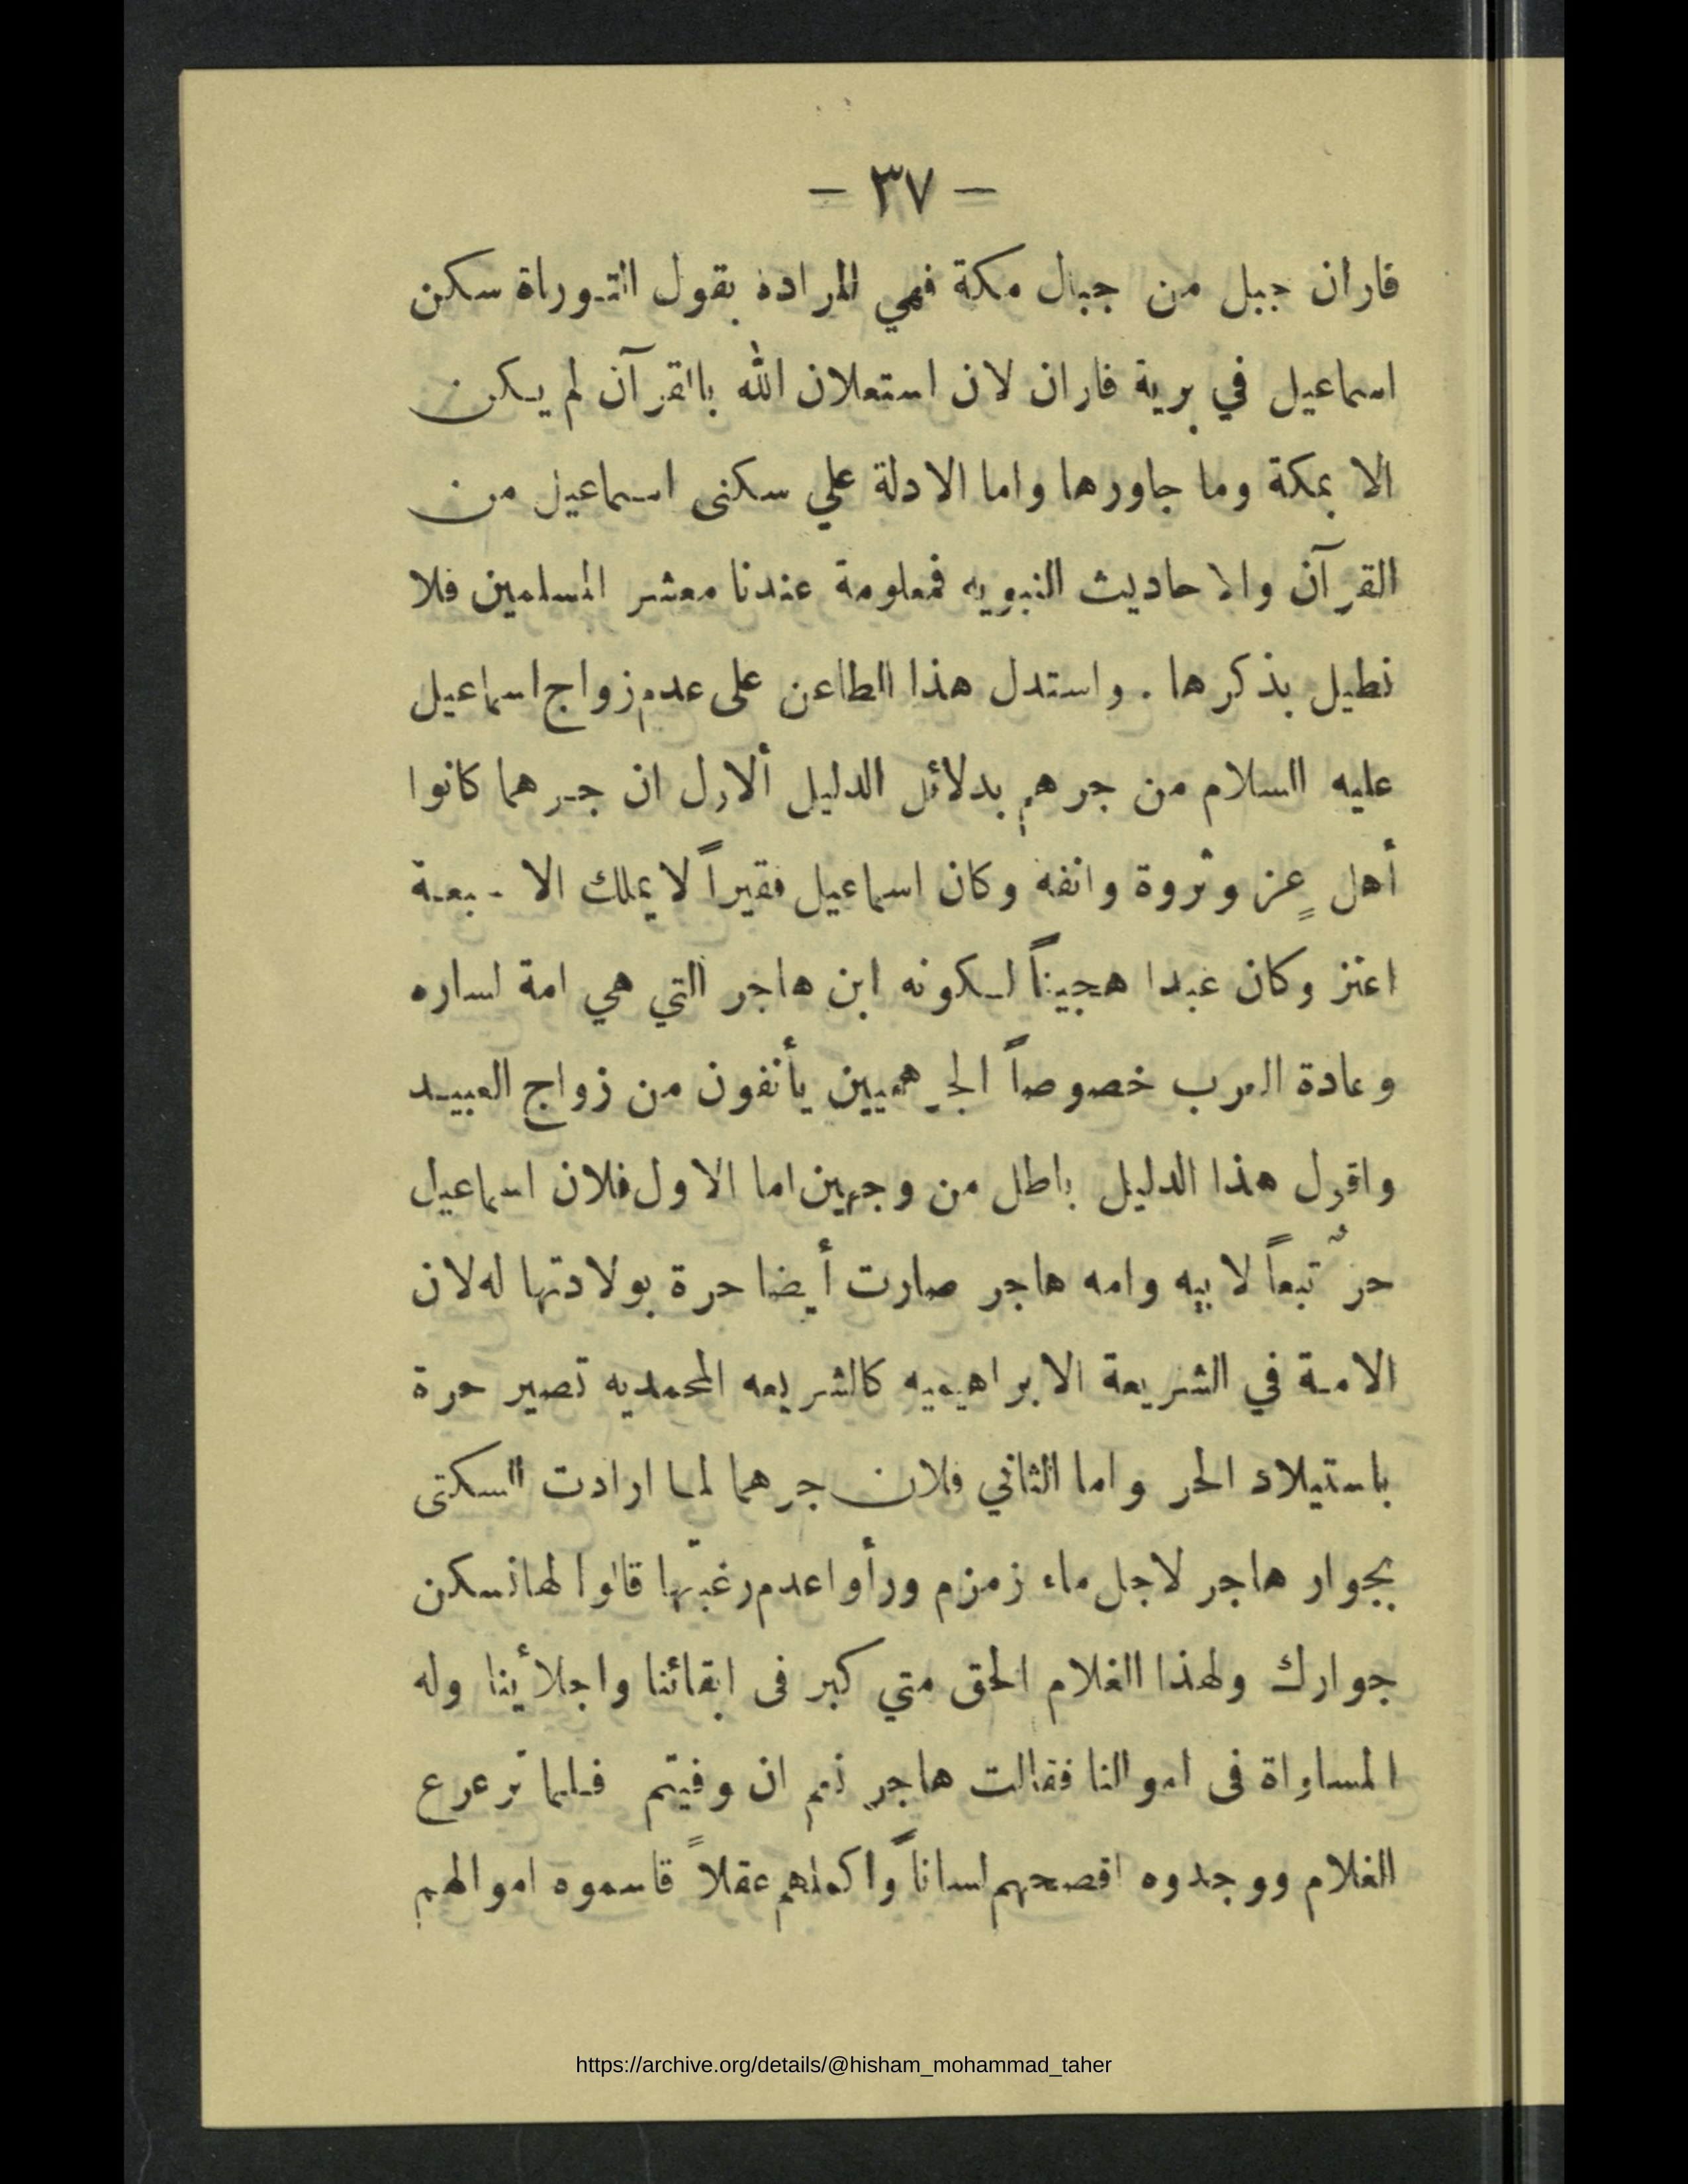 — ٣٧ —
فاران جبل من جبال مكة فهي المرادة بقول التوراة سكن
اسماعيل في برية فاران لان استعلان الله بالقرآن لم يكن
الا بمكة وما جاورها واما الادلة علي سكنى اسماعيل من
القرآن والاحاديث النبويه فمعلومة عندنا معشر المسلمين فلا
نطيل بذكرها . واستدل هذا الطاعن على عدم زواج اسماعيل
عليه السلام من جرهم بدلائل الدليل ألاول ان جرهما كانوا
أهل عزٍ وثروة وانفه وكان اسماعيل فقيراً لا يملك الا سبعة
اعنز وكان عبدا هجيناً لكونه ابن هاجر التي هي امة لساره
وعادة العرب خصوصاً الجرهميين يأنفون من زواج العبيد
واقول هذا الدليل باطل من وجهين اما الاول فلان اسماعيل
حرٌ تبعاً لابيه وامه هاجر صارت أيضا حرة بولادتها له لان
الامة في الشريعة الابراهيميه كالشريعه المحمديه تصير حرة
باستيلاد الحر واما الثاني فلان جرهما لما ارادت السكتى
بجوار هاجر لاجل ماء زمزم ورأوا عدم رغبتها قالوا لها نسكن
جوارك ولهذا الغلام الحق متي كبر فى ابقائنا واجلائنا وله
المساواة فى اموالنا فقالت هاجر نعم ان وفيتم فلما ترعرع
الغلام ووجدوه افصحهم لساناً واكملهم عقلاً قاسموه اموالهم
https://archive.org/details/@hisham_mohammad_taher